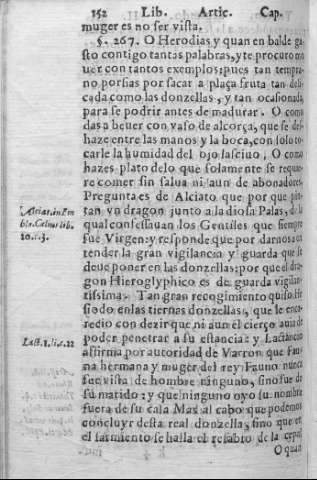 152 Lib. Artic. Cap.
muger es no ser vista.
§. 267. O Herodias y quan en balde ga-
sto contigo tantas palabras, y te procuro mo
uer con tantos exemplos: pues tan tempra-
no porfias por sacar a plaça fruta tan deli-
cada como las donzellas, y tan ocasionada
para se podrir antes de madurar. O como
das a beuer con vaso de alcorça, que se des-
haze entre las manos y la boca, con solo to-
carle la humidad del ojo lasciuo, O como
hazes plato de lo que solamente se requie-
re comer sin salua ni aun de abonadores
Pregunta es de Alciato que por que pin-
tan vn dragon junto a la diosa Palas, de la
qual confessauan los Gentiles que siempre
fue Virgen: y responde que por darnos a en
tender la gran vigilancia y guarda que se
deue poner en las donzellas: por que el dra-
gon Hieroglyphico es de guarda vigilan-
tissima. Tan gran recogimiento quiso He
siodo en las tiernas donzellas, que le enca-
redio con dezir que ni aun el cierço auia de
poder penetrar a su estancia: y Lactancio
affirma por autoridad de Varron que Fau-
na hermana y muger del rey Fauno nunca
fue vista de hombre ninguno, sino fue de
su marido: y que ninguno oyo su nombre
fuera de su casa Mas al cabo que podemos
concluyr desta real donzella, sino que en
el sarmiento se halla el resabio de la cepa?
O quan
Alciat. in Em
lib.
Lact. 1. li. c. 22